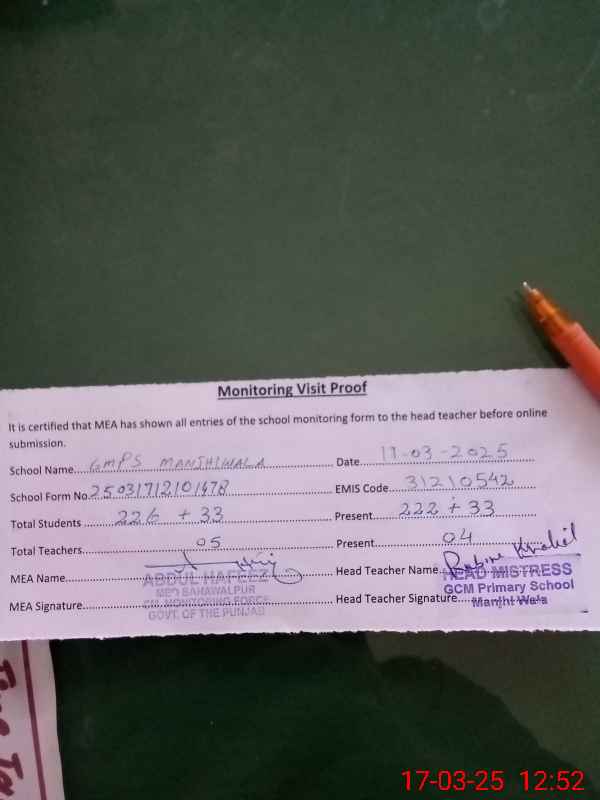 Monitoring Visit Proof
It is certified that MEA has shown all entries of the school monitoring form to the head teacher before online
submission.
School Name....GMPS MANJHIWALA Date....17-03-2025
School Form No.25031712101478 EMIS Code....31210542
Total Students....226 + 33 Present....222 + 33
Total Teachers....05 Present....04
MEA Name.... ABDUL HAFEEZ Head Teacher Name.... HEAD MISTRESS
MEA Signature.... BAHAWALPUR Head Teacher Signature.... GCM Primary School
CM MONITORING FORCE Manjhi Wala
GOVT. OF THE PUNJAB
17-03-25 12:52